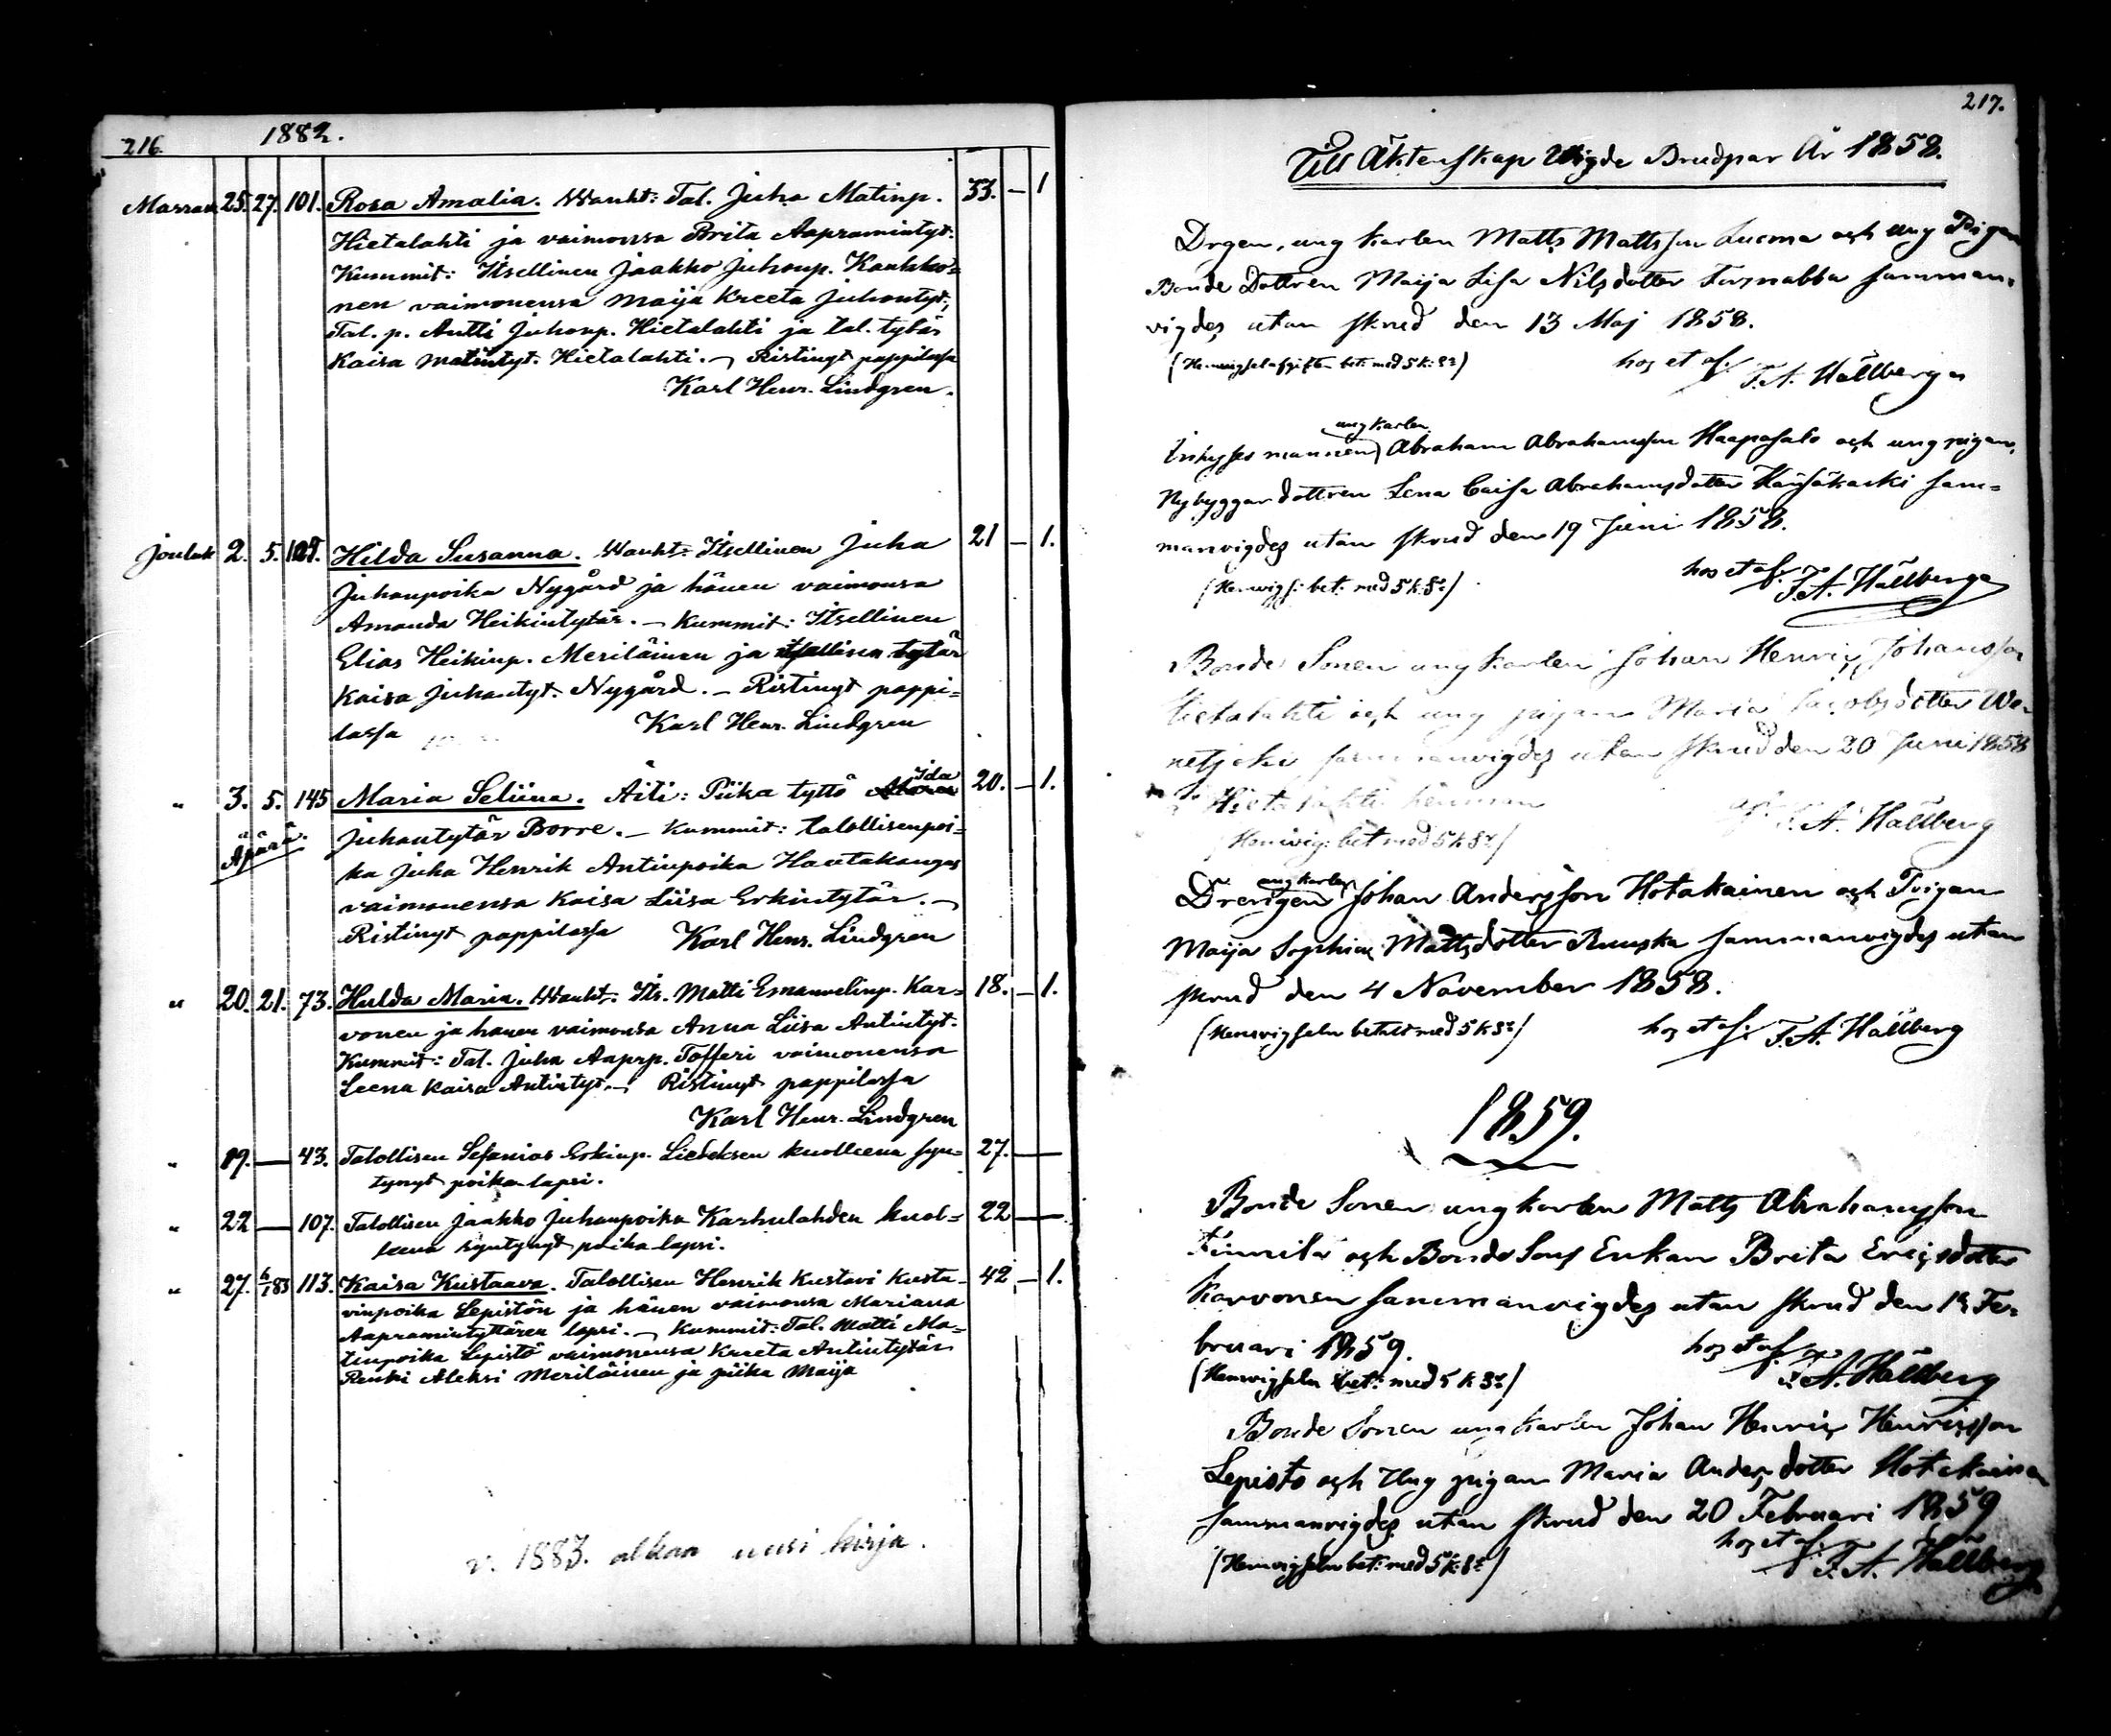 216.
1882.
Marrask 25. 27. 101. Rosa Amalia. Wanht: Tal. Juha Matinp. 33. – 1
Hietalahti ja vaimonsa Brita Aapramintyt.
Kummit: Itsellinen Jaakko Juhonp. Kankko=
nen vaimonensa Maija Kreeta Juhontyt.,
Tal. p. Antti Juhonp. Hietalahti ja tal. tytär
Kaisa Matintyt. Hietalahti. – Ristinyt pappilassa
Karl Henr. Lindgren.
Jouluk 2. 5. Hilda Susanna. Wanht: Itsellinen Juha 21 – 1.
Juhanpoika Nygård ja hänen vaimonsa
Amanda Heikintytär. – Kummit: Itsellinen
Elias Heikinp. Meriläinen ja itsellisen tytär
Kaisa Juhantyt. Nygård. – Ristinyt pappi=
lassa Karl Henr. Lindgren
" 3. 5. 145 Maria Seliina. Äiti: Piika tyttö Ida 20. – 1.
Äpärä. Juhantytär Borre. – Kummit: talollisenpoi=
ka Juha Henrik Antinpoika Hautakangas
vaimonensa Kaisa Liisa Erkintytär. –
Ristinyt pappilassa Karl Henr. Lindgren
" 20. 21. 73. Hulda Maria. Wanht: Its. Matti Emanuelinp. Kar= 18. – 1.
vonen ja hänen vaimonsa Anna Liisa Antintyt.
Kummit: Tal. Juha Aaprp. Tofferi vaimonensa
Leena Kaisa Antintyt. – Ristinyt pappilassa
Karl Henr. Lindgren
" 19. — 43. Talollisen Sefanias Erkinp. kuolleena syn= 27. —
tynyt poika lapsi.
" 22 — 107. Talollisen Jaakko Juhanpoika Karhulahden kuol= 22 —
leena syntynyt poika lapsi.
" 27. 6/1 83 113. Kaisa Kustaava. Talollisen Henrik Kustavi Kusta= 42 – 1.
vinpoika Lepistön ja hänen vaimonsa Mariana
Aapramintyttären lapsi. – Kummit: Tal. Matti Ma=
tinpoika Lepistö vaimonensa Kreeta Antintytär
Renki Aleksi Meriläinen ja piika Maija
v. 1883. alkaa uusi kirja.
217.
Till Äktenskap Wigde Brudpar År 1858.
Drgen, ung karlen Matts Mattsson Luoma och ung Pigan
Bonde Dottren Maija Lisa Nilsdotter samman-
vigdes utan skrud den 13 Maj 1858.
(Hemvigselafgiften bet: med 5 k: Sr) hos et af: F. A. Hällberg
ung karlen
Inhyses mannen Abraham Abrahamsson Haapasalo och ung pigan,
Nybyggardottren Lena Caisa Abrahamsdotter sam=
manvigdes utan skrud den 19 Juni 1858.
(Hemvigs: bet: med 5 k. Sr) hos et af: F. A. Hällberg
Bonde Sonen ung karlen Johan Henric Johansson
Hietalahti och ung pigan Maria Jacobsdotter We-
netjoki sammanvigdes utan skrud den 20 Juni 1858
i Hietalahti hemman af: F. A. Hällberg
(Hemvig: bet med 5 k Sr)
ung karlen
Drengen Johan Andersson Hotakainen och Pigan
Maija Sophia Mattsdotter Ruuska sammanvigdes utan
skrud den 4 November 1858.
(Hemvigseln betalt med 5 k Sr) hos et af: F. A. Hällberg
1859.
Bonde Sonen ung karlen Matts Abrahamsson
Finnilä och Bonde Sons Enkan Brita Ericsdotter
Karvonen sammanvigdes utan skrud den Fe=
bruari 1859. hos et af: F. A. Hällberg
(Hemvigseln bet: med 5 k Sr)
Bonde Sonen ung karlen Johan Henric Henricsson
Lepistö och Ung pigan Maria Andersdotter Hotakainen
sammanvigdes utan skrud den 20 Februari 1859
(Hemvigseln bet: med 5 k: Sr) hos et af: F. A. Hällberg